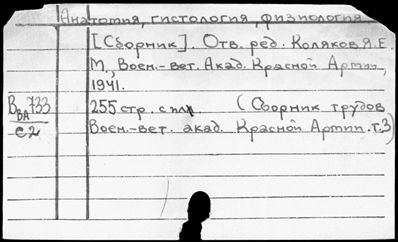 Анатомия, гистология, физиология
[Сборник]. Отв. ред. Коляков Я.Е.
М., Воен.-вет. Акад. Красной Армии,
1941.
В 733
ВА
С2
255 стр. с илл. (Сборник трудов
Воен.-вет. акад. Красной Армии. т.3)